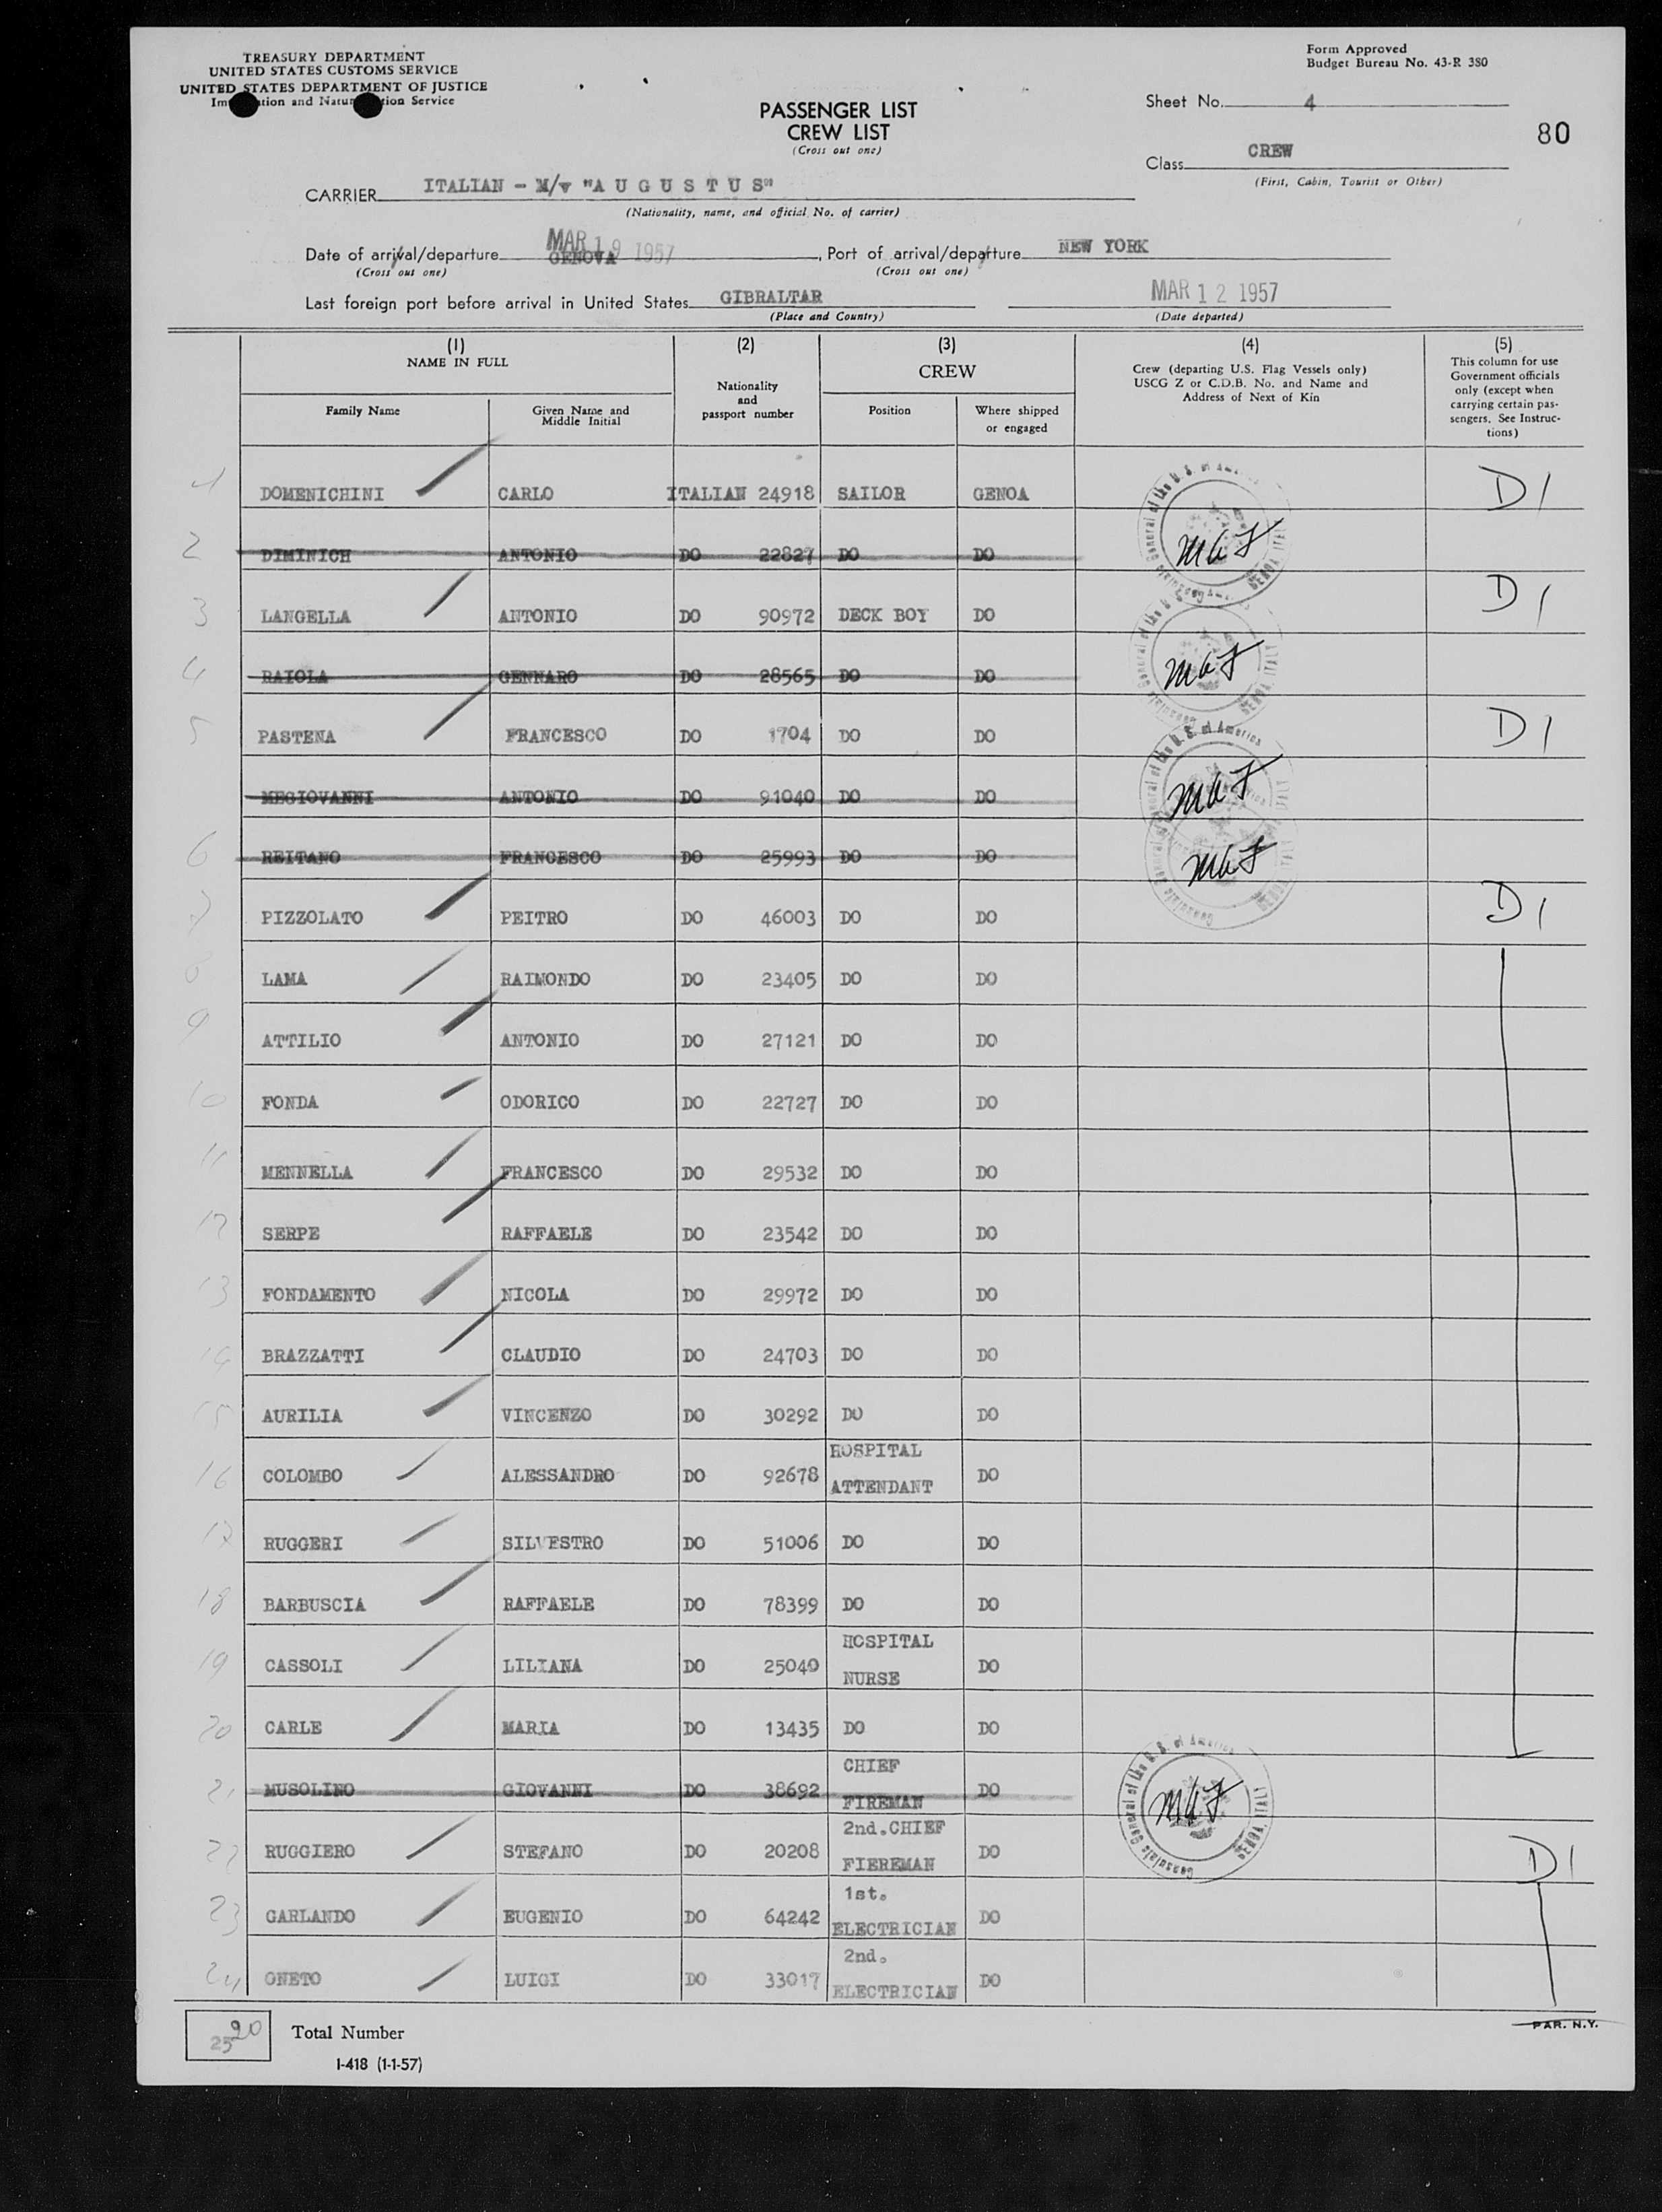 TREASURY DEPARTMENT
UNITED STATES CUSTOMS SERVICE
UNITED STATES DEPARTMENT OF JUSTICE
Im tion and Natur tion Service
Form Approved
Budget Bureau No. 43-R 380
PASSENGER LIST
CREW LIST
(Cross out one)
Sheet No. 4
80
Class CREW
(First, Cabin, Tourist or Other)
CARRIER ITALIAN - M/v "A U G U S T U S"
(Nationality, name, and official No. of carrier)
Date of arrival/departure MAR 19 1957 GENOVA, Port of arrival/departure NEW YORK
(Cross out one) (Cross out one)
Last foreign port before arrival in United States GIBRALTAR MAR 12 1957
(Place and Country) (Date departed)
(1) (2) (3) (4) (5)
NAME IN FULL
Family Name
Given Name and
Middle Initial
Nationality
and
passport number
CREW
Position
Where shipped
or engaged
Crew (departing U.S. Flag Vessels only)
USCG Z or C.D.B. No. and Name and
Address of Next of Kin
This column for use
Government officials
only (except when
carrying certain pas-
sengers. See Instruc-
tions)
1 DOMENICHINI CARLO ITALIAN 24918 SAILOR GENOA D1
2 DIMINICH ANTONIO DO 22827 DO DO
3 LANGELLA ANTONIO DO 90972 DECK BOY DO D1
4 RAIOLA GENNARO DO 28565 DO DO
5 PASTENA FRANCESCO DO 1704 DO DO D1
MEGIOVANNI ANTONIO DO 91040 DO DO
6 REITANO FRANCESCO DO 25993 DO DO
7 PIZZOLATO PEITRO DO 46003 DO DO D1
8 LAMA RAIMONDO DO 23405 DO DO
9 ATTILIO ANTONIO DO 27121 DO DO
10 FONDA ODORICO DO 22727 DO DO
11 MENNELLA FRANCESCO DO 29532 DO DO
12 SERPE RAFFAELE DO 23542 DO DO
13 FONDAMENTO NICOLA DO 29972 DO DO
14 BRAZZATTI CLAUDIO DO 24703 DO DO
15 AURILIA VINCENZO DO 30292 DO DO
16 COLOMBO ALESSANDRO DO 92678 HOSPITAL ATTENDANT DO
17 RUGGERI SILVESTRO DO 51006 DO DO
18 BARBUSCIA RAFFAELE DO 78399 DO DO
19 CASSOLI LILIANA DO 25040 HOSPITAL NURSE DO
20 CARLE MARIA DO 13435 DO DO
21 MUSOLINO GIOVANNI DO 38692 CHIEF FIREMAN DO
22 RUGGIERO STEFANO DO 20208 2nd.CHIEF FIEREMAN DO D1
23 GARLANDO EUGENIO DO 64242 1st. ELECTRICIAN DO
24 ONETO LUIGI DO 33017 2nd. ELECTRICIAN DO
25 20 Total Number
I-418 (1-1-57)
PAR. N.Y.